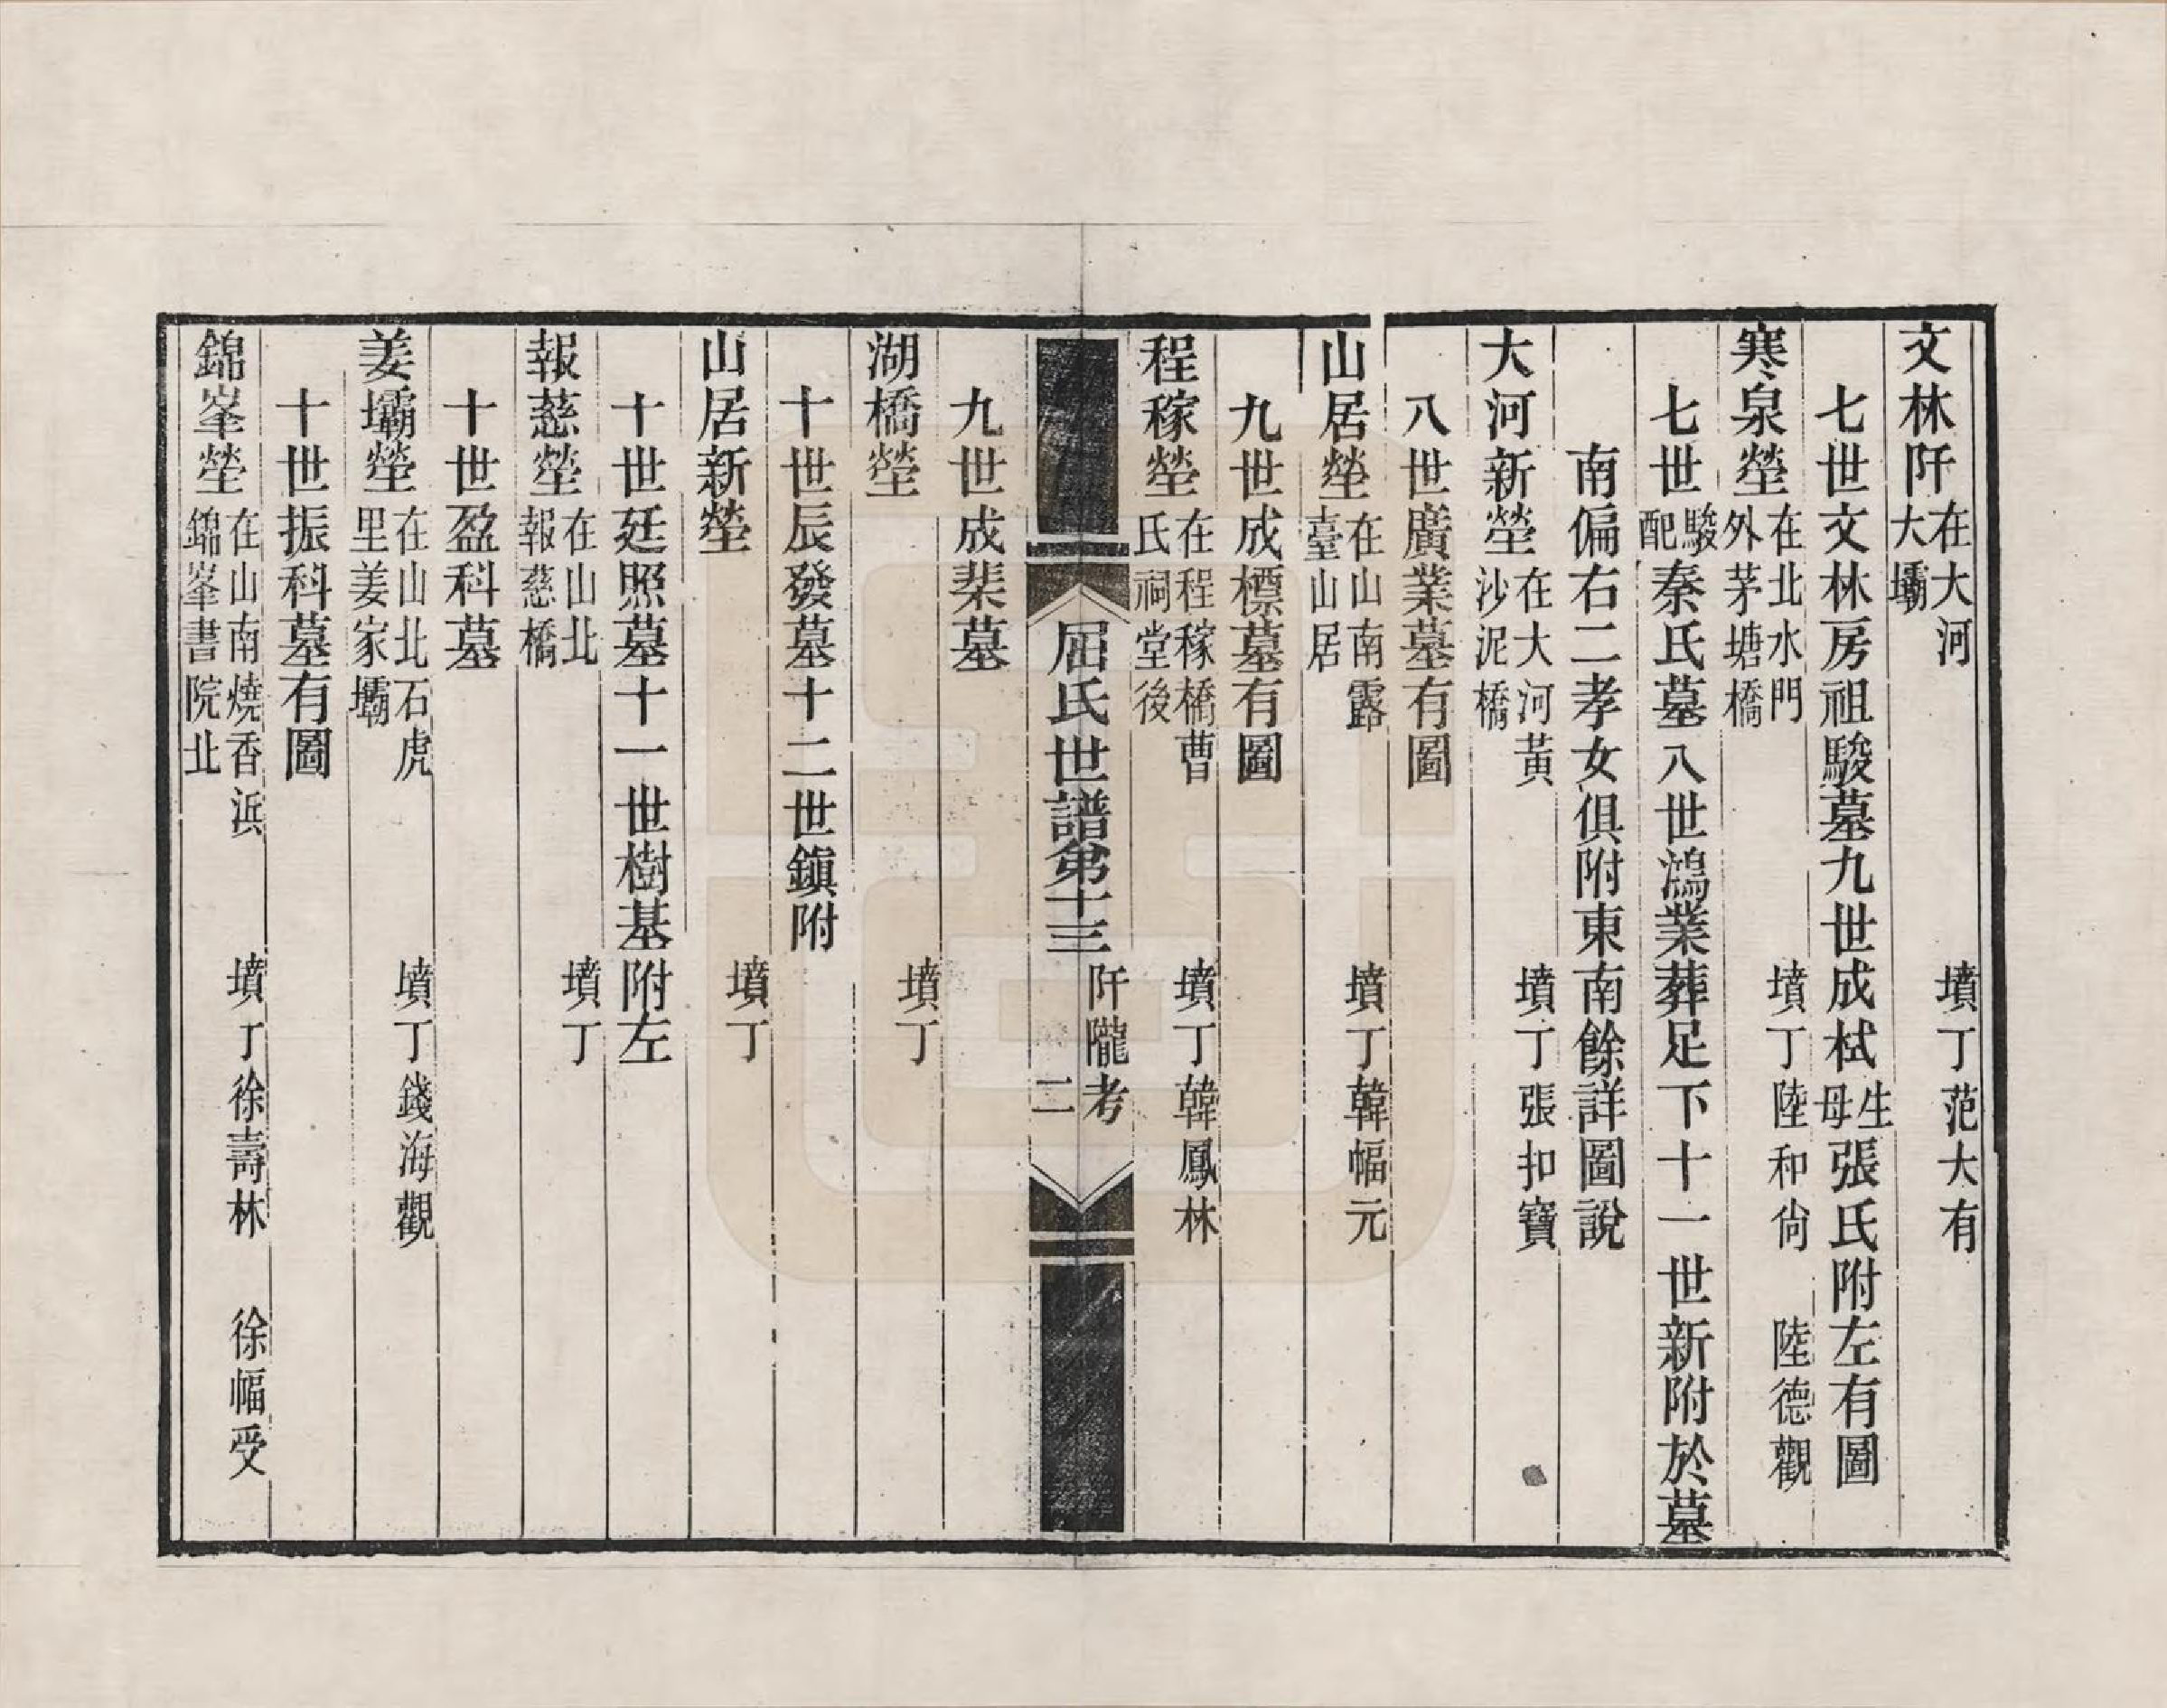 文林阡在大河大壩　墳丁范大有
七世文林房祖駿墓九世成栻生母張氏附左有圖
寒泉塋在北水門外茅塘橋　墳丁陸和尙　陸德觀
七世駿配秦氏墓八世鴻業葬足下十一世新附於墓
南偏右二孝女俱附東南餘詳圖說
大河新塋在大河黃沙泥橋　墳丁張扣寶
八世廣業墓有圖
山居塋在山南露臺山居　墳丁韓幅元
九世成標墓有圖
程稼塋在程稼橋曹氏祠堂後　墳丁韓鳳林
屈氏世譜弟十三　阡隴考　二
九世成棐墓
湖橋塋　墳丁
十世辰發墓十二世鎭附
山居新塋　墳丁
十世廷照墓十一世樹基附左
報慈塋在山北報慈橋　墳丁
十世盈科墓
姜壩塋在山北石虎里姜家壩　墳丁錢海觀
十世振科墓有圖
錦峯塋在山南燒香浜錦峯書院北　墳丁徐壽林　徐幅受